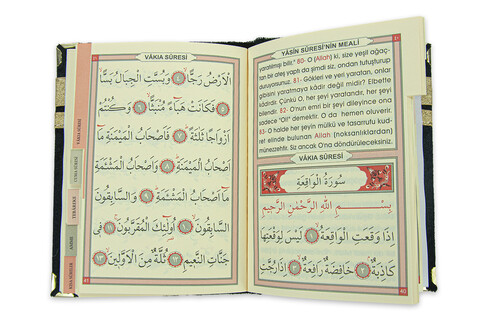 YÂSÎN SÛRESİ'NİN MEALİ
yaratılmışı bilir." 80- O (Allah) ki, size yeşil ağaç-
tan bir ateş yaptı da şimdi siz, ondan tutuşturup
duruyorsunuz. 81- Gökleri ve yeri yaratan, onlar
gibisini yaratmaya kâdir değil midir? Elbette
kâdirdir. Çünkü O, her şeyi yaratandır, her şeyi
bilendir. 82- O'nun emri bir şeyi dileyince ona
sadece "Ol!" demektir. O da hemen oluverir.
83- O halde her şeyin mülkü ve tasarrufu kud-
ret elinde bulunan Allah (noksanlıklardan)
münezzehtir. Siz ancak O'na döndürüleceksiniz.
VÂKIA SÛRESİ
سُورَةُ الْوَاقِعَةِ
بِسْمِ اللّٰهِ الرَّحْمٰنِ الرَّحِيمِ
اِذَا وَقَعَتِ الْوَاقِعَةُ ١ لَيْسَ لِوَقْعَتِهَا
كَاذِبَةٌ ٢ خَافِضَةٌ رَافِعَةٌ ٣ اِذَا رُجَّتِ
40
VÂKIA SÛRESİ
الْاَرْضُ رَجًّا ٤ وَبُسَّتِ الْجِبَالُ بَسًّا ٥
فَكَانَتْ هَبَٓاءً مُنْبَثًّا ٦ وَكُنْتُمْ
اَزْوَاجًا ثَلٰثَةً ٧ فَاَصْحَابُ الْمَيْمَنَةِ مَٓا
اَصْحَابُ الْمَيْمَنَةِ ٨ وَاَصْحَابُ الْمَشْـَٔمَةِ
مَٓا اَصْحَابُ الْمَشْـَٔمَةِ ٩ وَالسَّابِقُونَ
السَّابِقُونَ ١٠ اُو۬لٰٓئِكَ الْمُقَرَّبُونَ ١١ فِي
جَنَّاتِ النَّعِيمِ ١٢ ثُلَّةٌ مِنَ الْاَوَّلِينَ ١٣